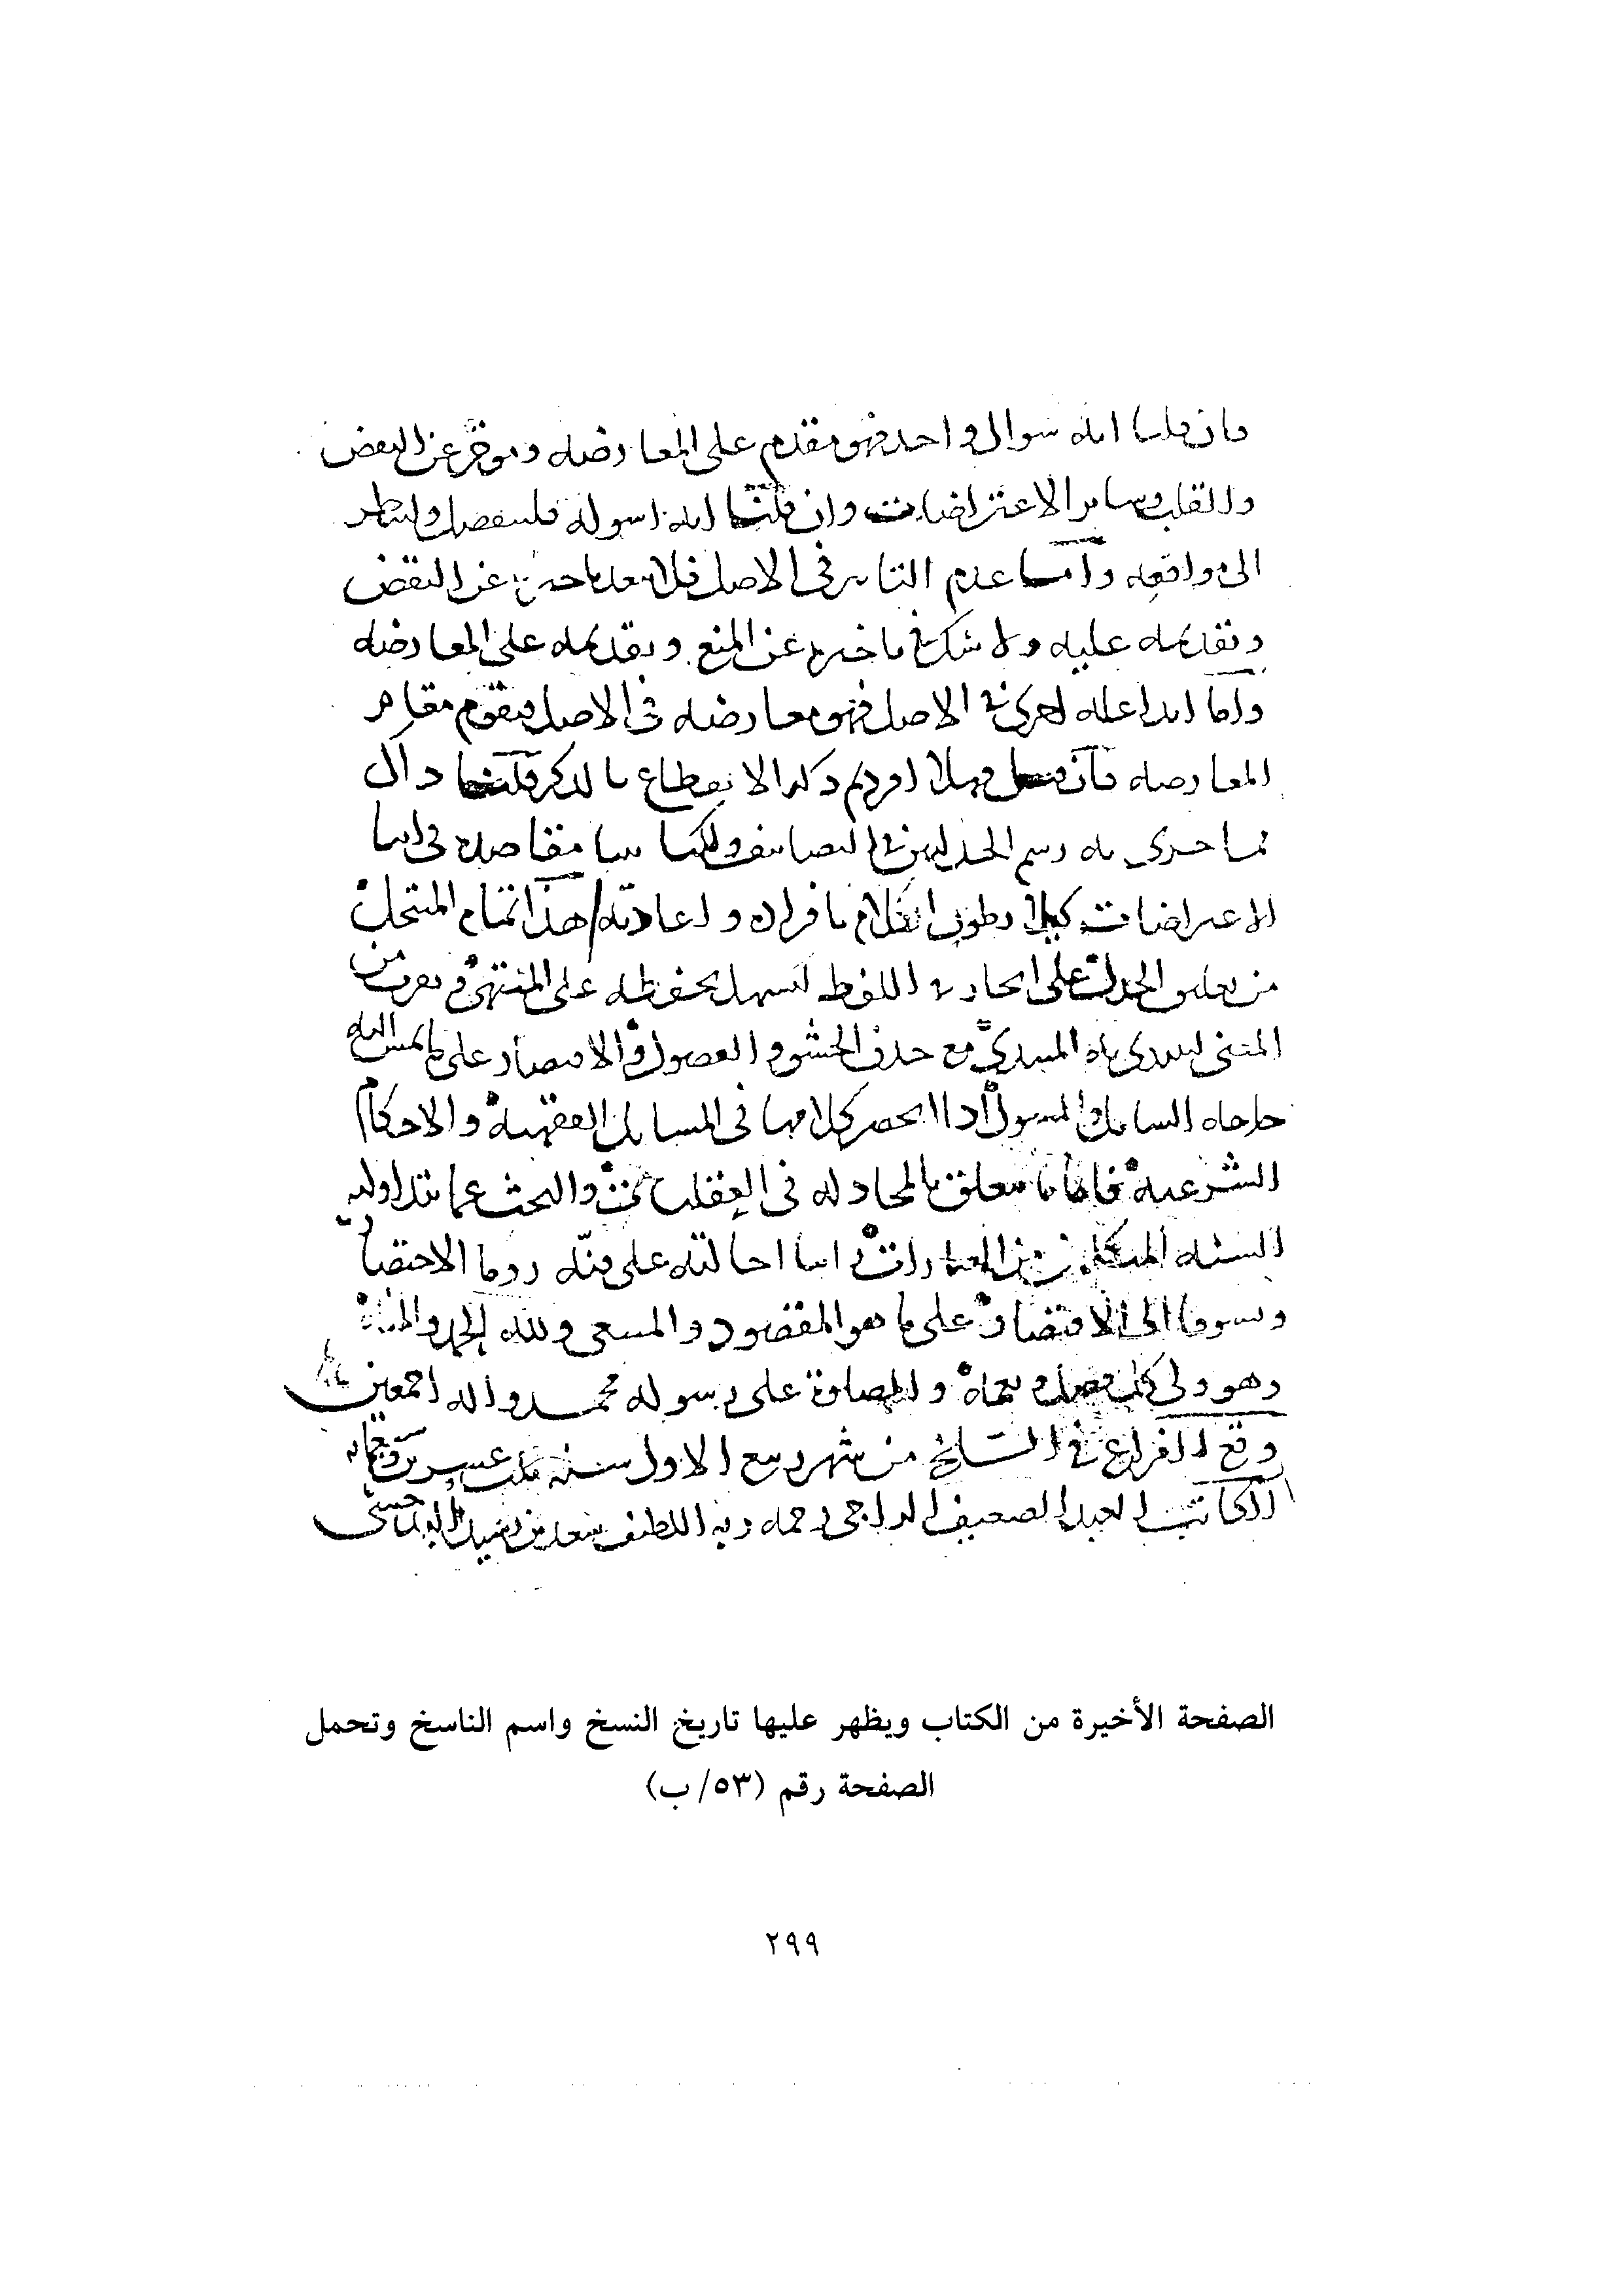 فان قلنا انه سوال واحد فهو مقدم على المعارضه وموخر عن النقض
والقلب وساير الاعتراضات وان قلنا انه اسوله فلينفصل ولينظر
الى مواقعه واما عدم التاثير فى الاصل فلا يبعد تاخيره عن النقض
وتقديمه عليه ولا شك فى تاخيره عن المنع وتقديمه على المعارضه
واما ابدا عله اخرى فى الاصل فهو معارضه فى الاصل فيقوم مقام
المعارضه فان قيل فهلا افردتم ذكر الانقطاع بالذكر قلنا ذاك
مما جرى به رسم الجدليين فى التصانيف ولكنا بينا مقاصده فى اثنا
الاعتراضات كيلا يطول الكلام بافراده واعادته هذا تمام المنتخل
من تعليق الجدل على ايجاز فى اللفظ ليسهل تحفظه على المنتهى و
المعنى ليهتدى به المبتدى مع حذف الحشو والفضول والاقتصار على ما تمس اليه
حاجه السايل والمسول اذا انحصر كلامهما فى المسايل الفقهية والاحكام
الشرعية فاما ما يتعلق بالمجادله فى العقليات والبحث عما تتداوله
السنه المتكلمين من العبارات اثرنا احالته على فنه روما للاختصار
وتشوفا الى الاقتصار على ما هو المقصود والمسعى ولله الحمد والمنة
وهو ولى كل فضل ونعمة والصلوة على رسوله محمد واله اجمعين
وقع الفراغ فى السلخ من شهر ربيع الاول سنه ثلث عشر
الكاتب العبد الضعيف الراجى رحمه ربه اللطيف سعد بن
الصفحة الأخيرة من الكتاب ويظهر عليها تاريخ النسخ واسم الناسخ وتحمل
الصفحة رقم (٥٣/ب)
٢٩٩